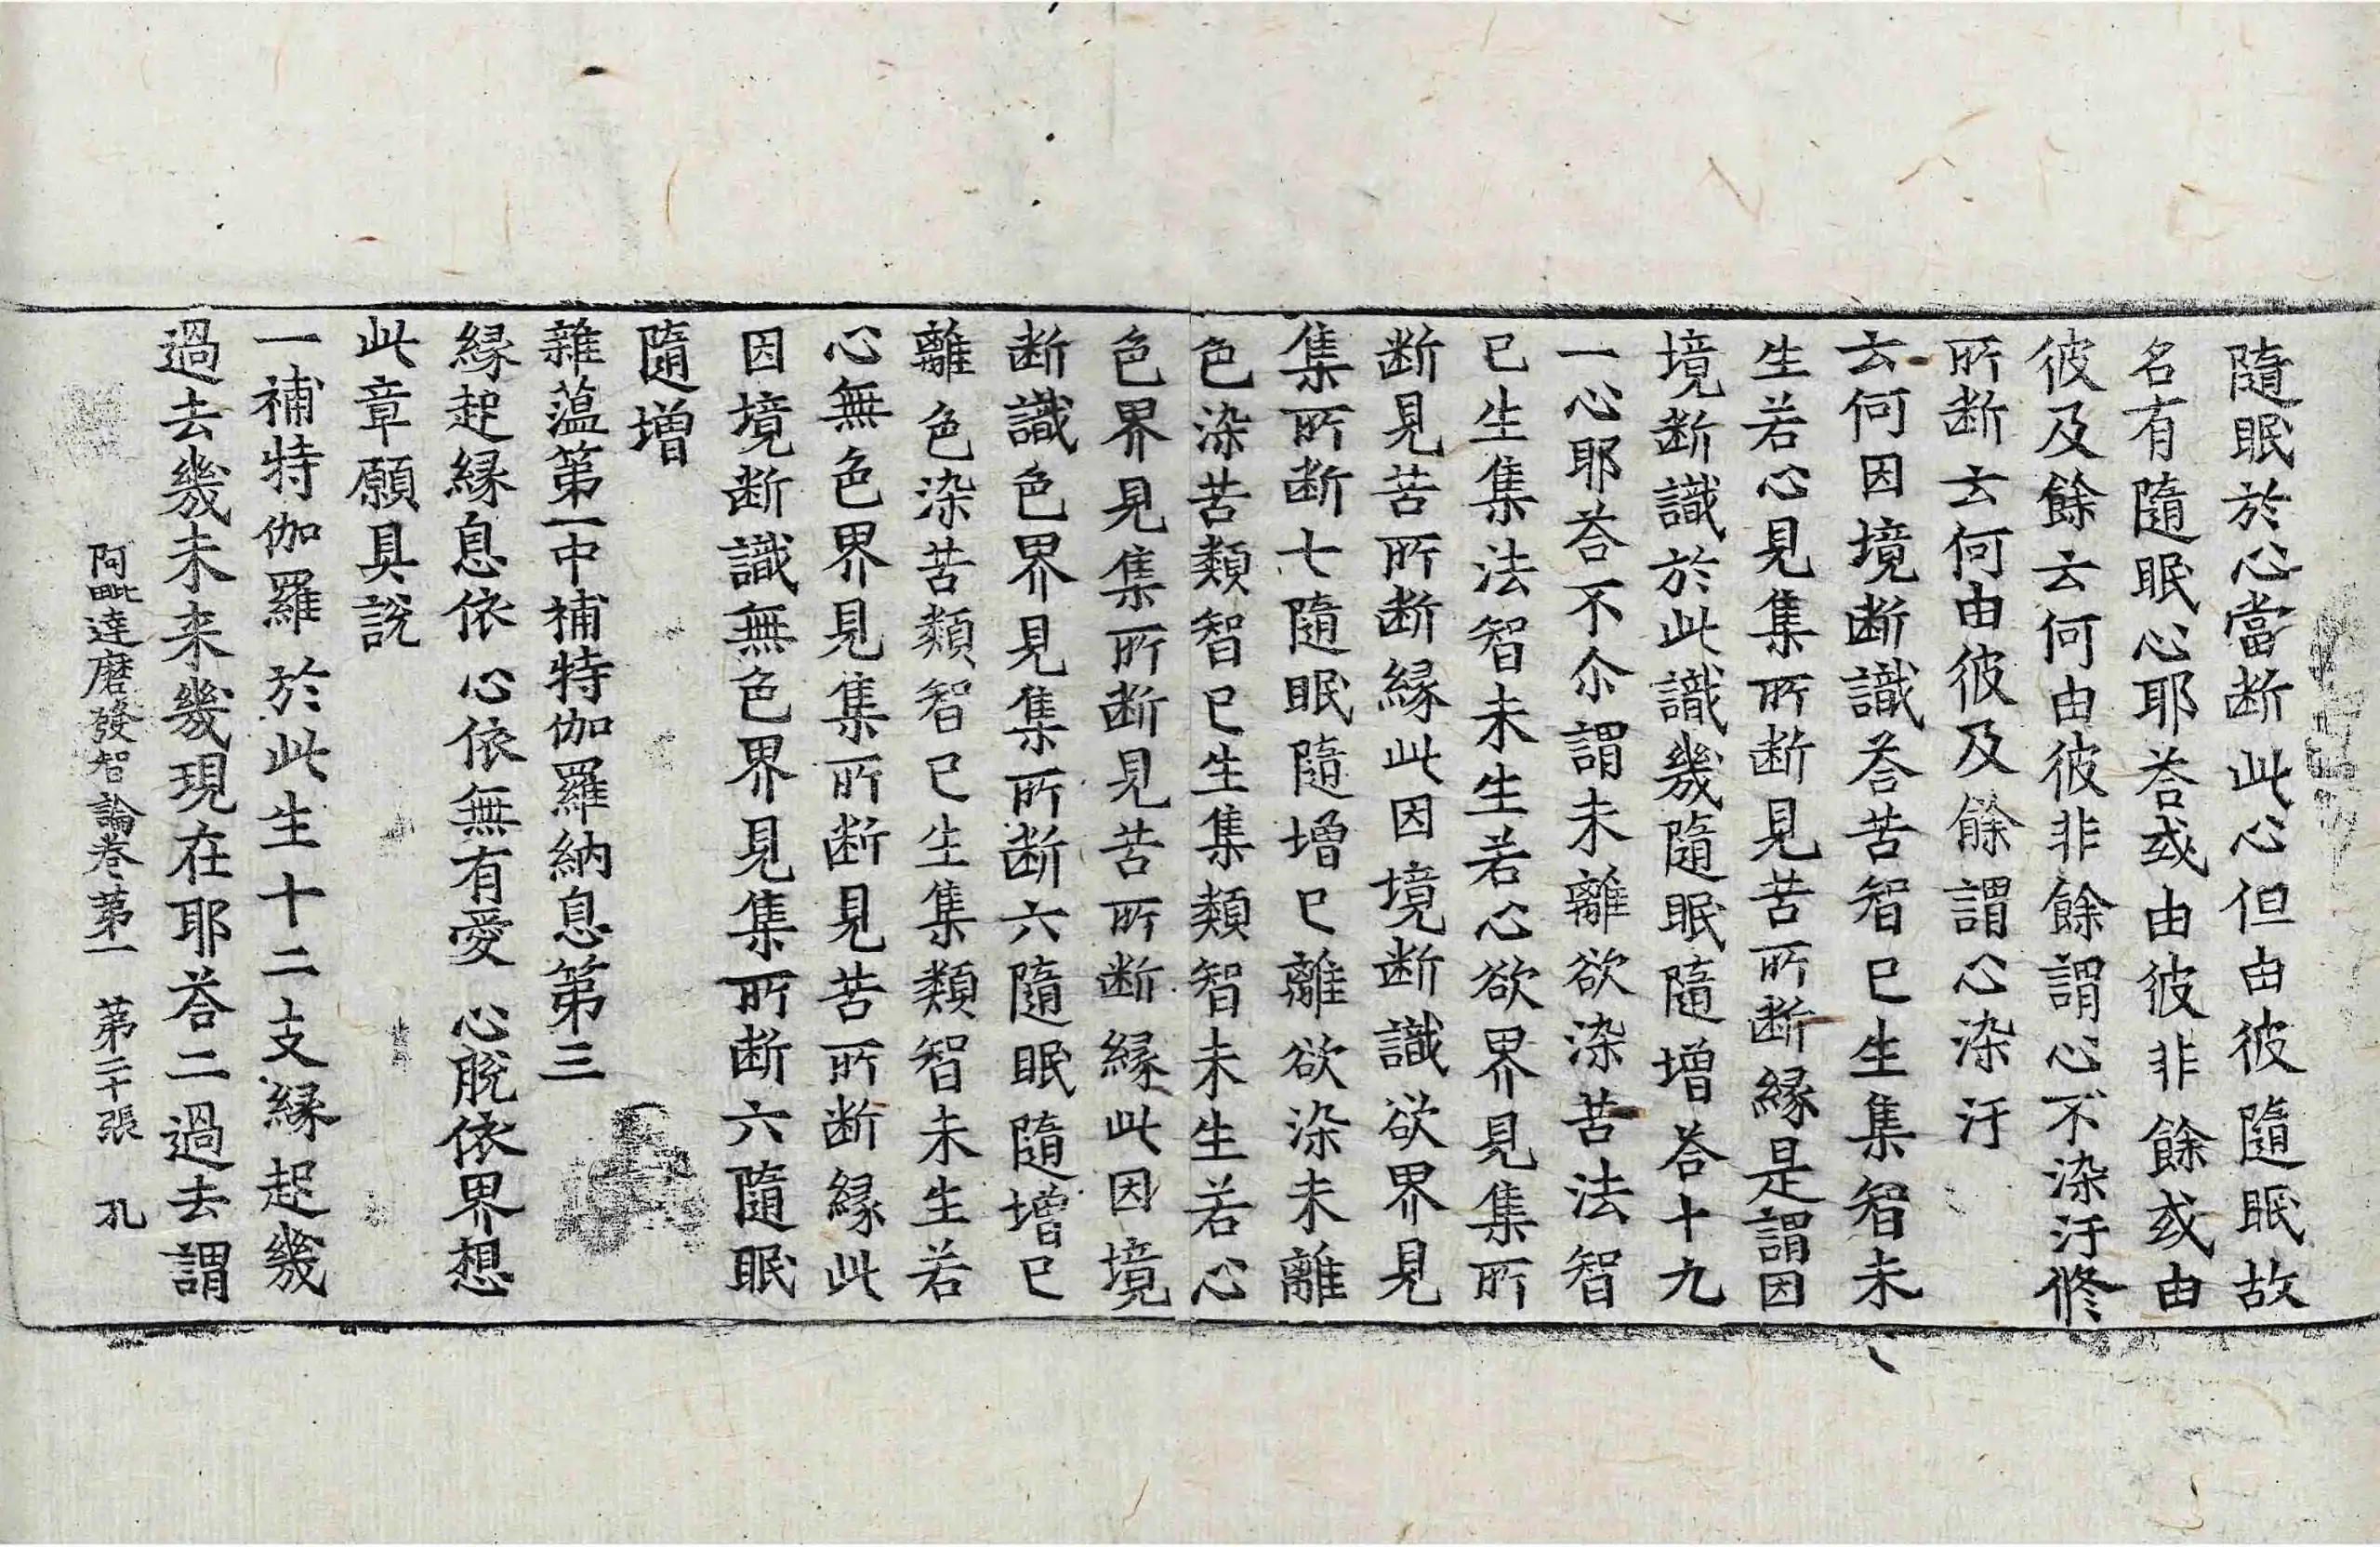 隨眠於心當断此心但由彼隨眠故
名有隨眠心耶荅或由彼非餘或由
彼及餘云何由彼非餘謂心不染汙修
所断云何由彼及餘謂心染汙
云何因境断識荅苦智已生集智未
生若心見集所断見苦所断縁是謂因
境断識於此識幾隨眠隨增荅十九
一心耶荅不尒謂未離欲染苦法智
已生集法智未生若心欲界見集所
断見苦所断縁此因境断識欲界見
集所断七隨眠隨增已離欲染未離
色染苦類智已生集類智未生若心
色界見集所断見苦所断縁此因境
断識色界見集所断六隨眠隨增已
離色染苦類智已生集類智未生若
心無色界見集所断見苦所断縁此
因境断識無色界見集所断六隨眠
隨增
雜薀第一中補特伽羅納息第三
縁起縁息依 心依無有愛 心脫依界想
此章願具說
一補特伽羅於此生十二支縁起幾
過去幾未来幾現在耶荅二過去謂
阿毗達磨發智論卷第一 第二十張 孔